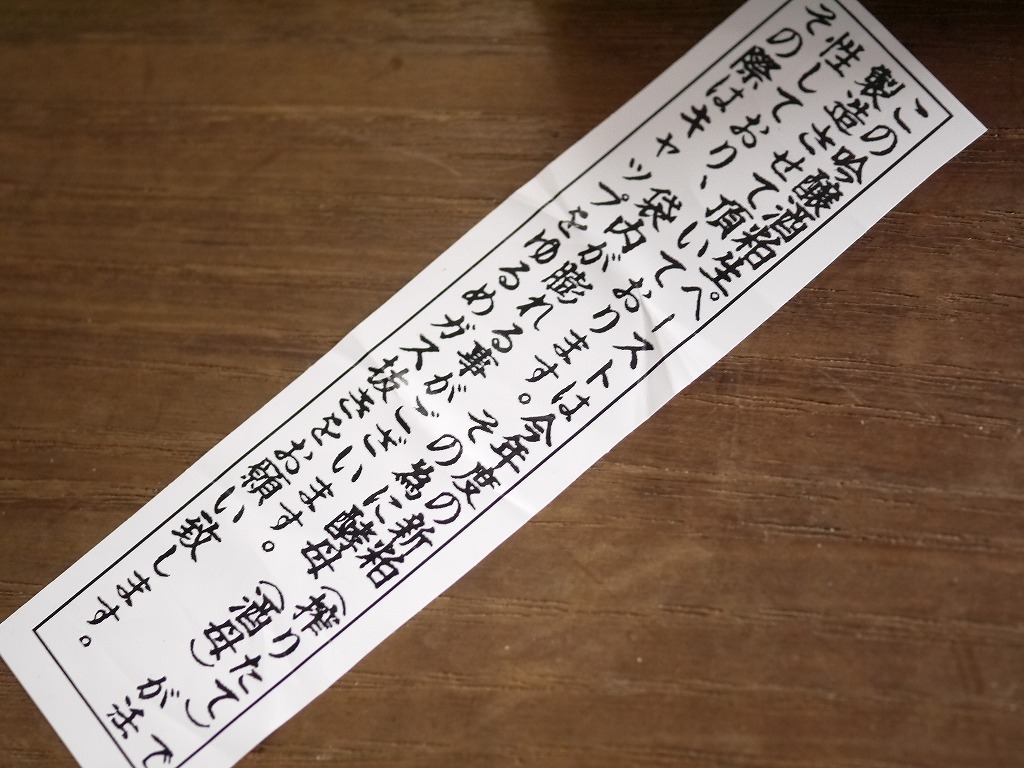 この吟醸酒粕生ペーストは今年度の新粕（搾りたて）で
製造させて頂いております。その為に酵母（酒母）が活
性しており、袋内が膨れる事がございます。
その際はキャップをゆるめガス抜きをお願い致します。